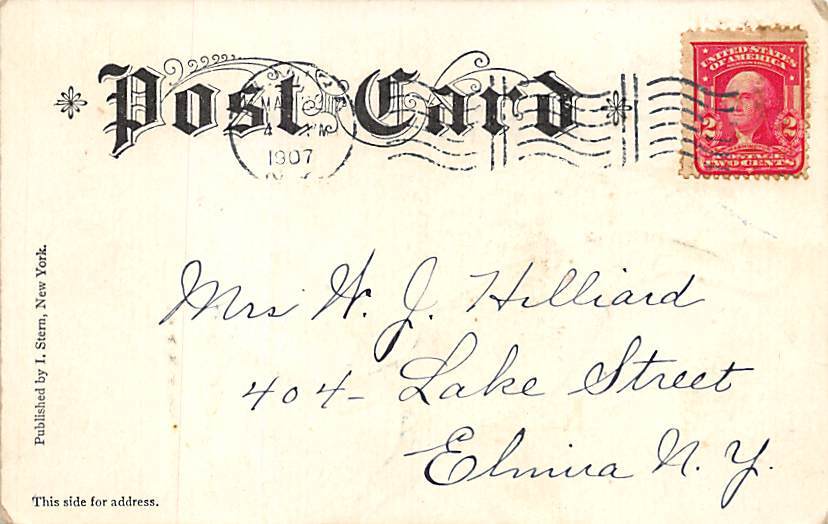 Post Card
MAR
4 PM
1907
UNITED STATES
OF AMERICA
2 2
POSTAGE
TWO CENTS
Mrs W. J. Hilliard
404- Lake Street
Elmira N. Y.
Published by I. Stern, New York.
This side for address.